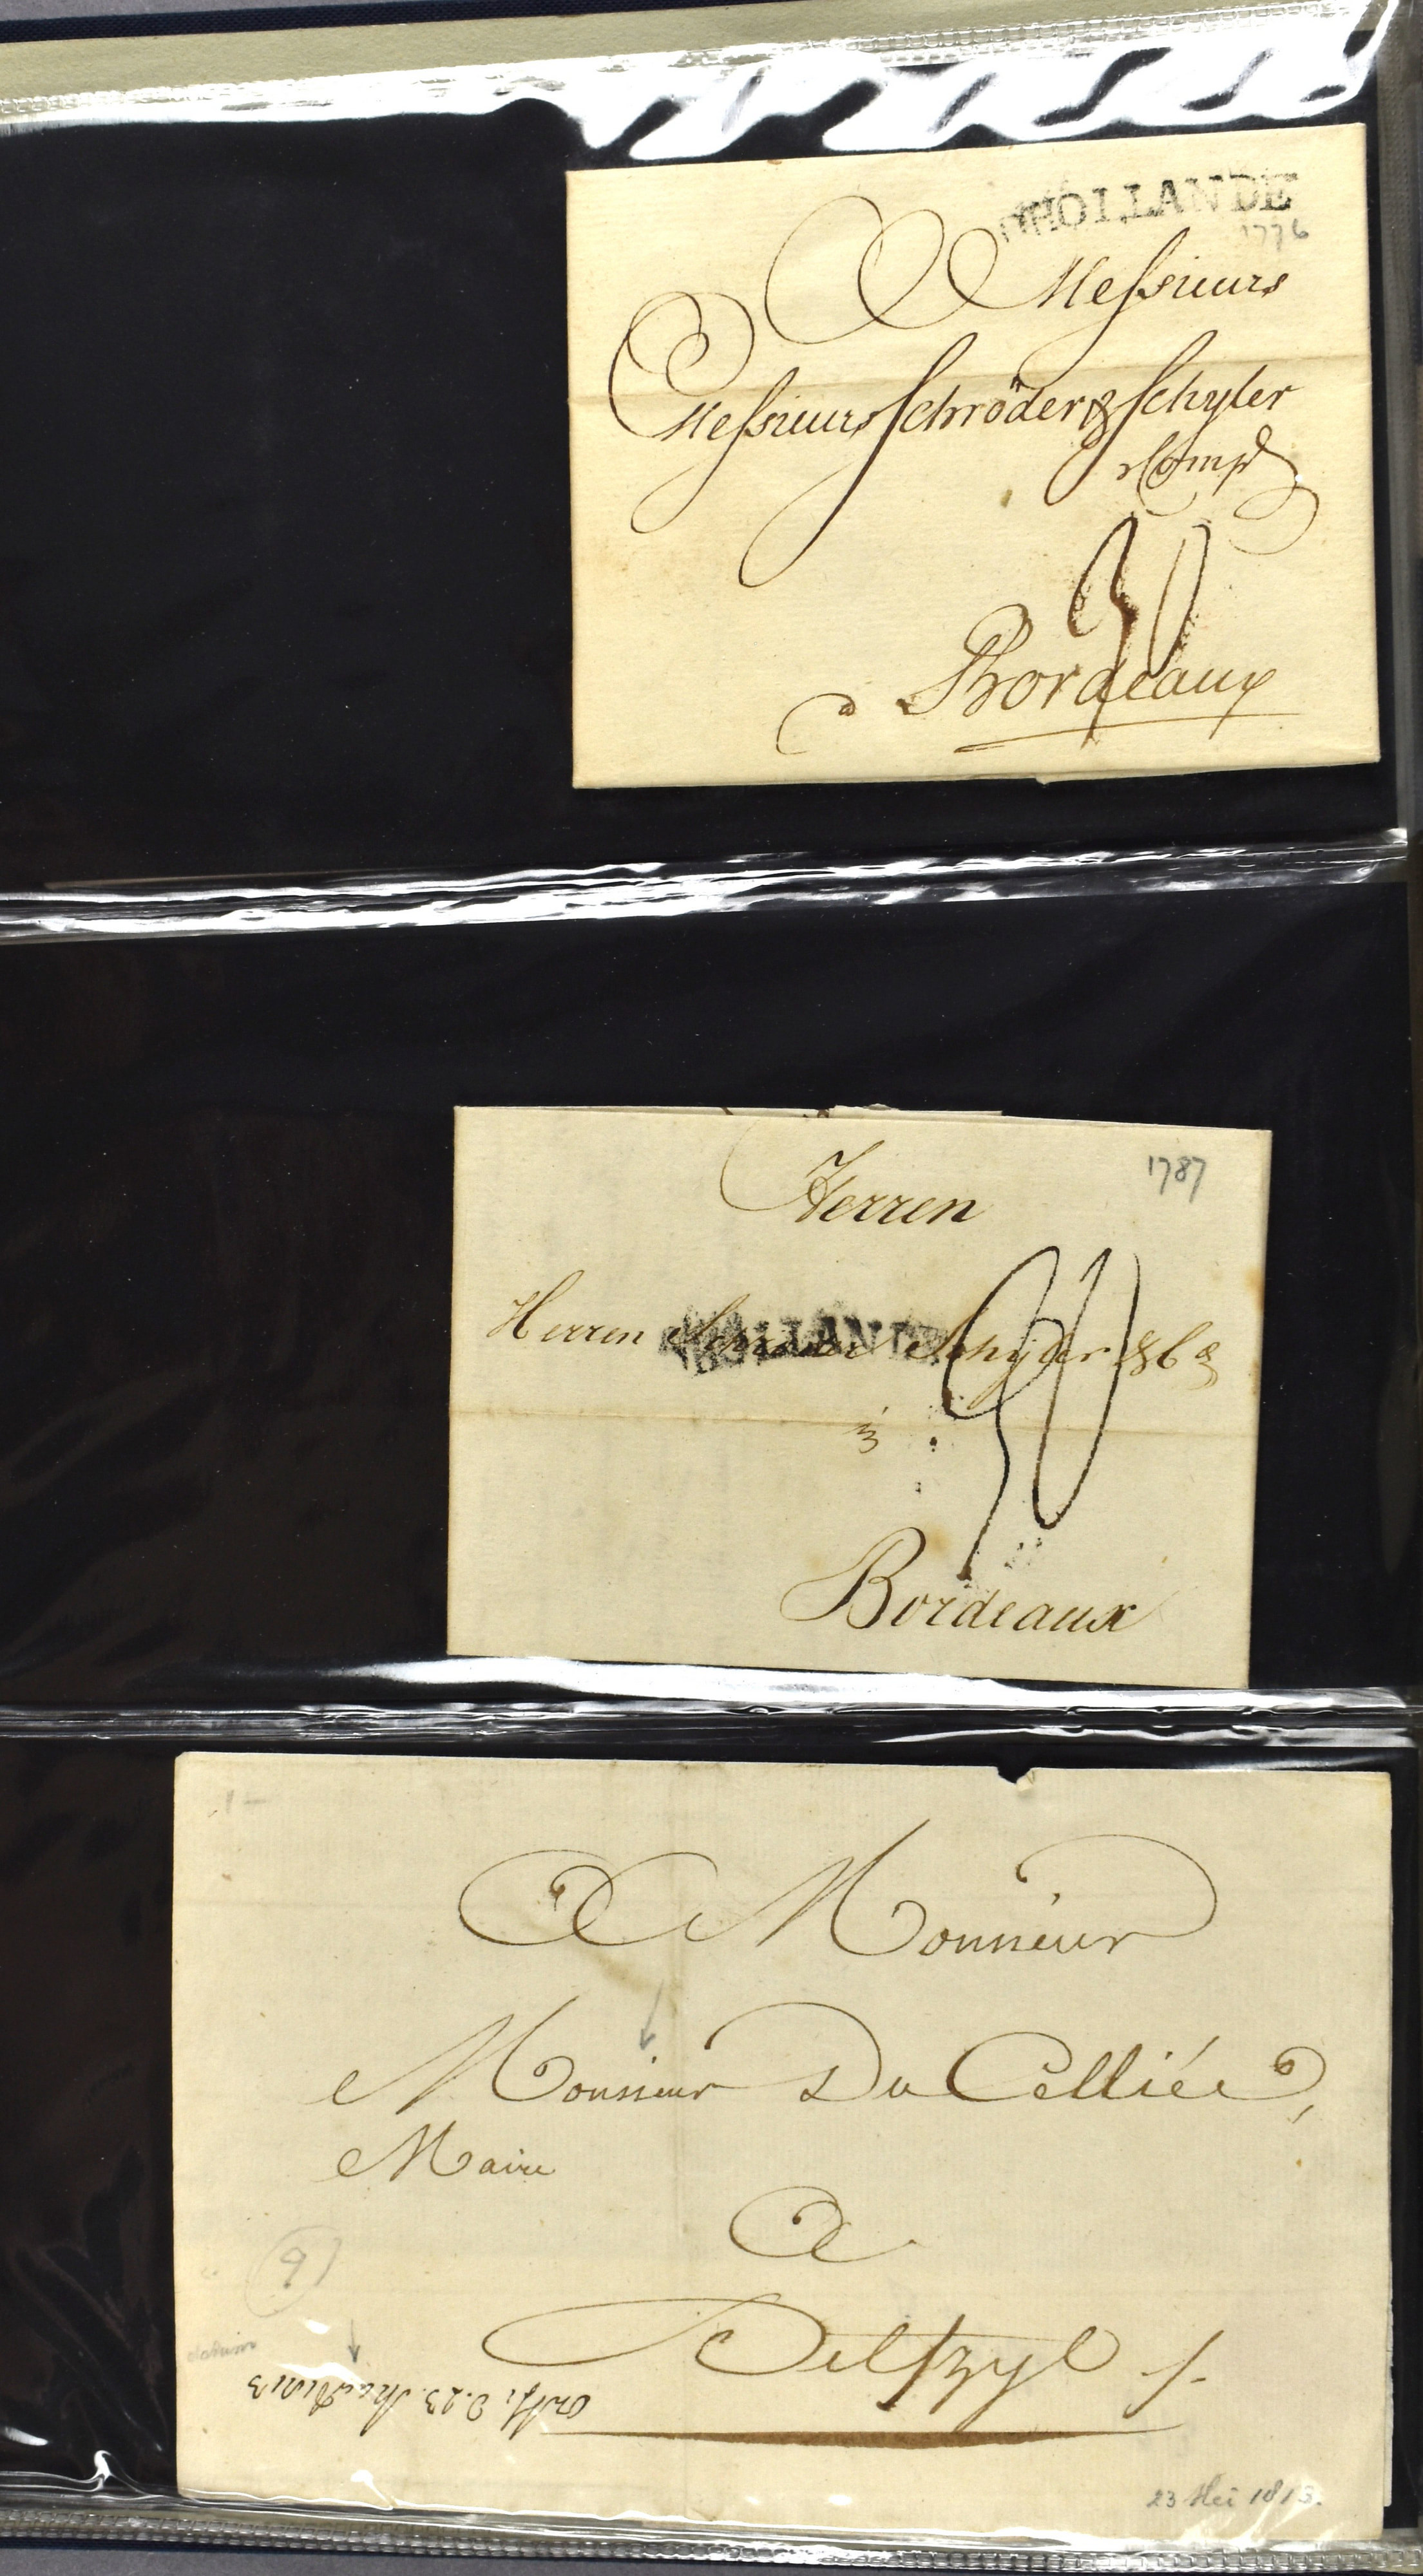 HOLLANDE
1776
A Messieurs
Messieurs Schröder & Schyler
& Comp
30
à Bordeaux
1787
Herren
Herren Schröder Schyler & Co
30
Bordeaux
1-
A Monsieur
Monsieur Du Celliée,
Maire
A
Delfzyl
9
23 Mei 1813.